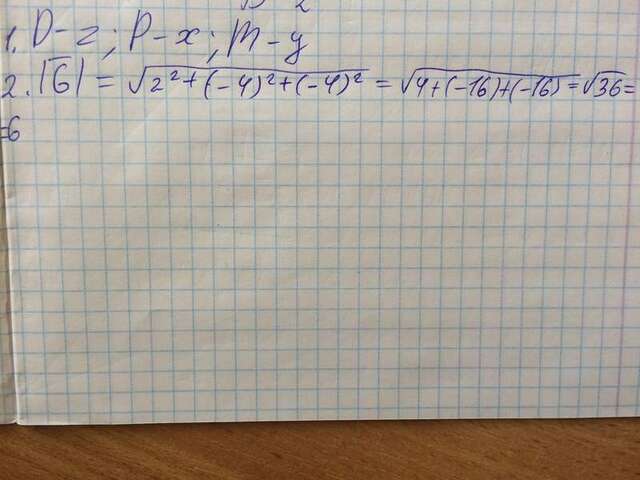 1. D-z; P-x; M-y
2. |б̅| = √2²+(-4)²+(-4)² = √4+(-16)+(-16) = √36 =
=6